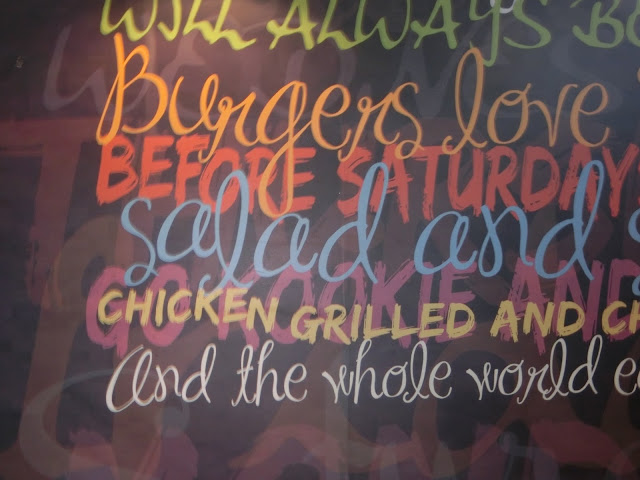 WILL ALWAYS
Burgers love
BEFORE SATURDAY
salad and
GO KOOKIE AND
CHICKEN GRILLED AND CH
And the whole world